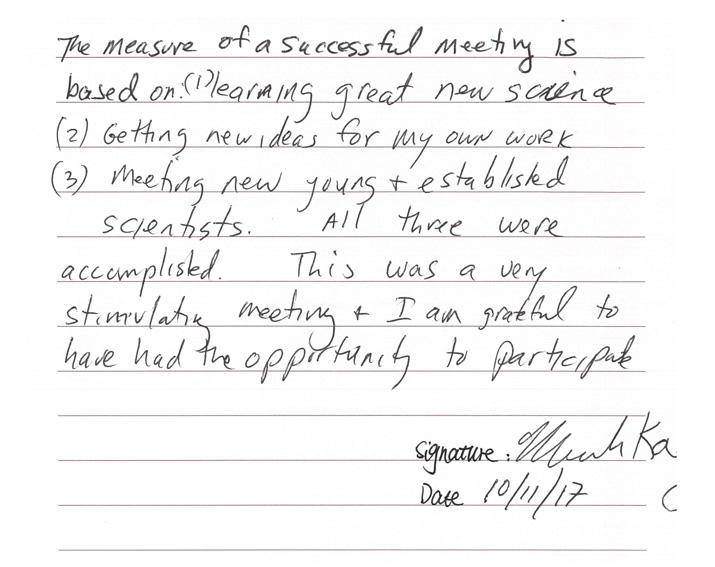 The measure of a successful meeting is
based on: (1) learning great new science
(2) Getting new ideas for my own work
(3) Meeting new young + established
scientists. All three were
accomplished. This was a very
stimulating meeting + I am grateful to
have had the opportunity to participate
Signature:
Date 10/11/17